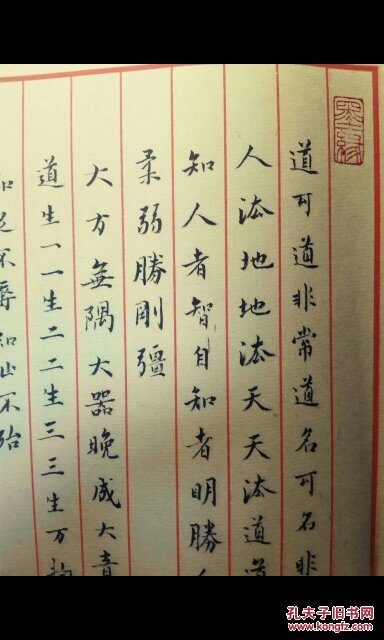 道可道非常道名可名非
人法地地法天天法道道
知人者智自知者明勝人
柔弱勝剛彊
大方無隅大器晚成大音
道生一一生二二生三三生万物
知足不辱知止不殆
孔夫子旧书网
www.kongfz.com